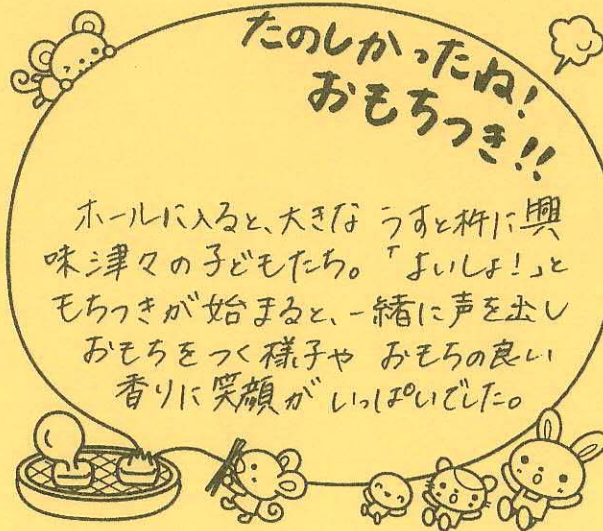 たのしかったね!
おもちつき!!
ホールに入ると、大きな うすと杵に興
味津々の子どもたち。「よいしょ!」と
もちつきが始まると、一緒に声を出し
おもちをつく様子や おもちの良い
香りに笑顔が いっぱいでした。